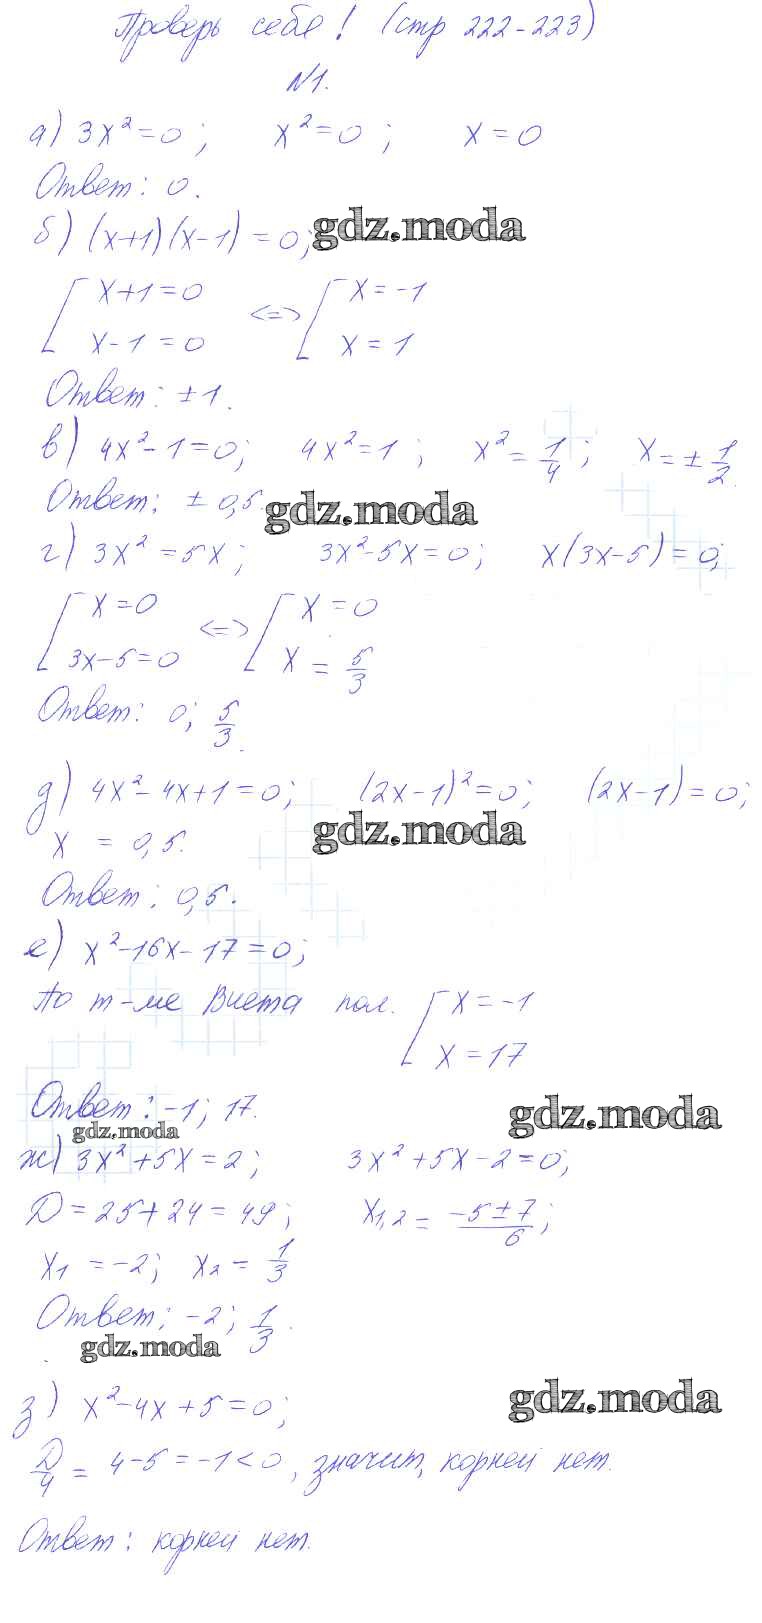 Проверь себя! (стр 222-223)
№1.
а) 3x²=0; x²=0; x=0
Ответ: 0.
б) (x+1)(x-1)=0;
gdz.moda
[ x+1=0 <=> [ x=-1
x-1=0 x=1
Ответ: ±1.
в) 4x²-1=0; 4x²=1; x²=1/4; x=±1/2.
Ответ: ±0,5.
gdz.moda
г) 3x²=5x; 3x²-5x=0; x(3x-5)=0;
[ x=0 <=> [ x=0
3x-5=0 x=5/3
Ответ: 0; 5/3.
д) 4x²-4x+1=0; (2x-1)²=0; (2x-1)=0;
gdz.moda
x = 0,5.
Ответ: 0,5.
е) x²-16x-17=0;
По т-ме Виета пол. [ x=-1
x=17
Ответ: -1; 17.
gdz.moda
gdz.moda
ж) 3x²+5x=2; 3x²+5x-2=0;
D=25+24=49; x1,2=(-5±7)/6;
x1=-2; x2=1/3
Ответ: -2; 1/3.
gdz.moda
gdz.moda
з) x²-4x+5=0;
D/4=4-5=-1<0, значит, корней нет.
Ответ: корней нет.